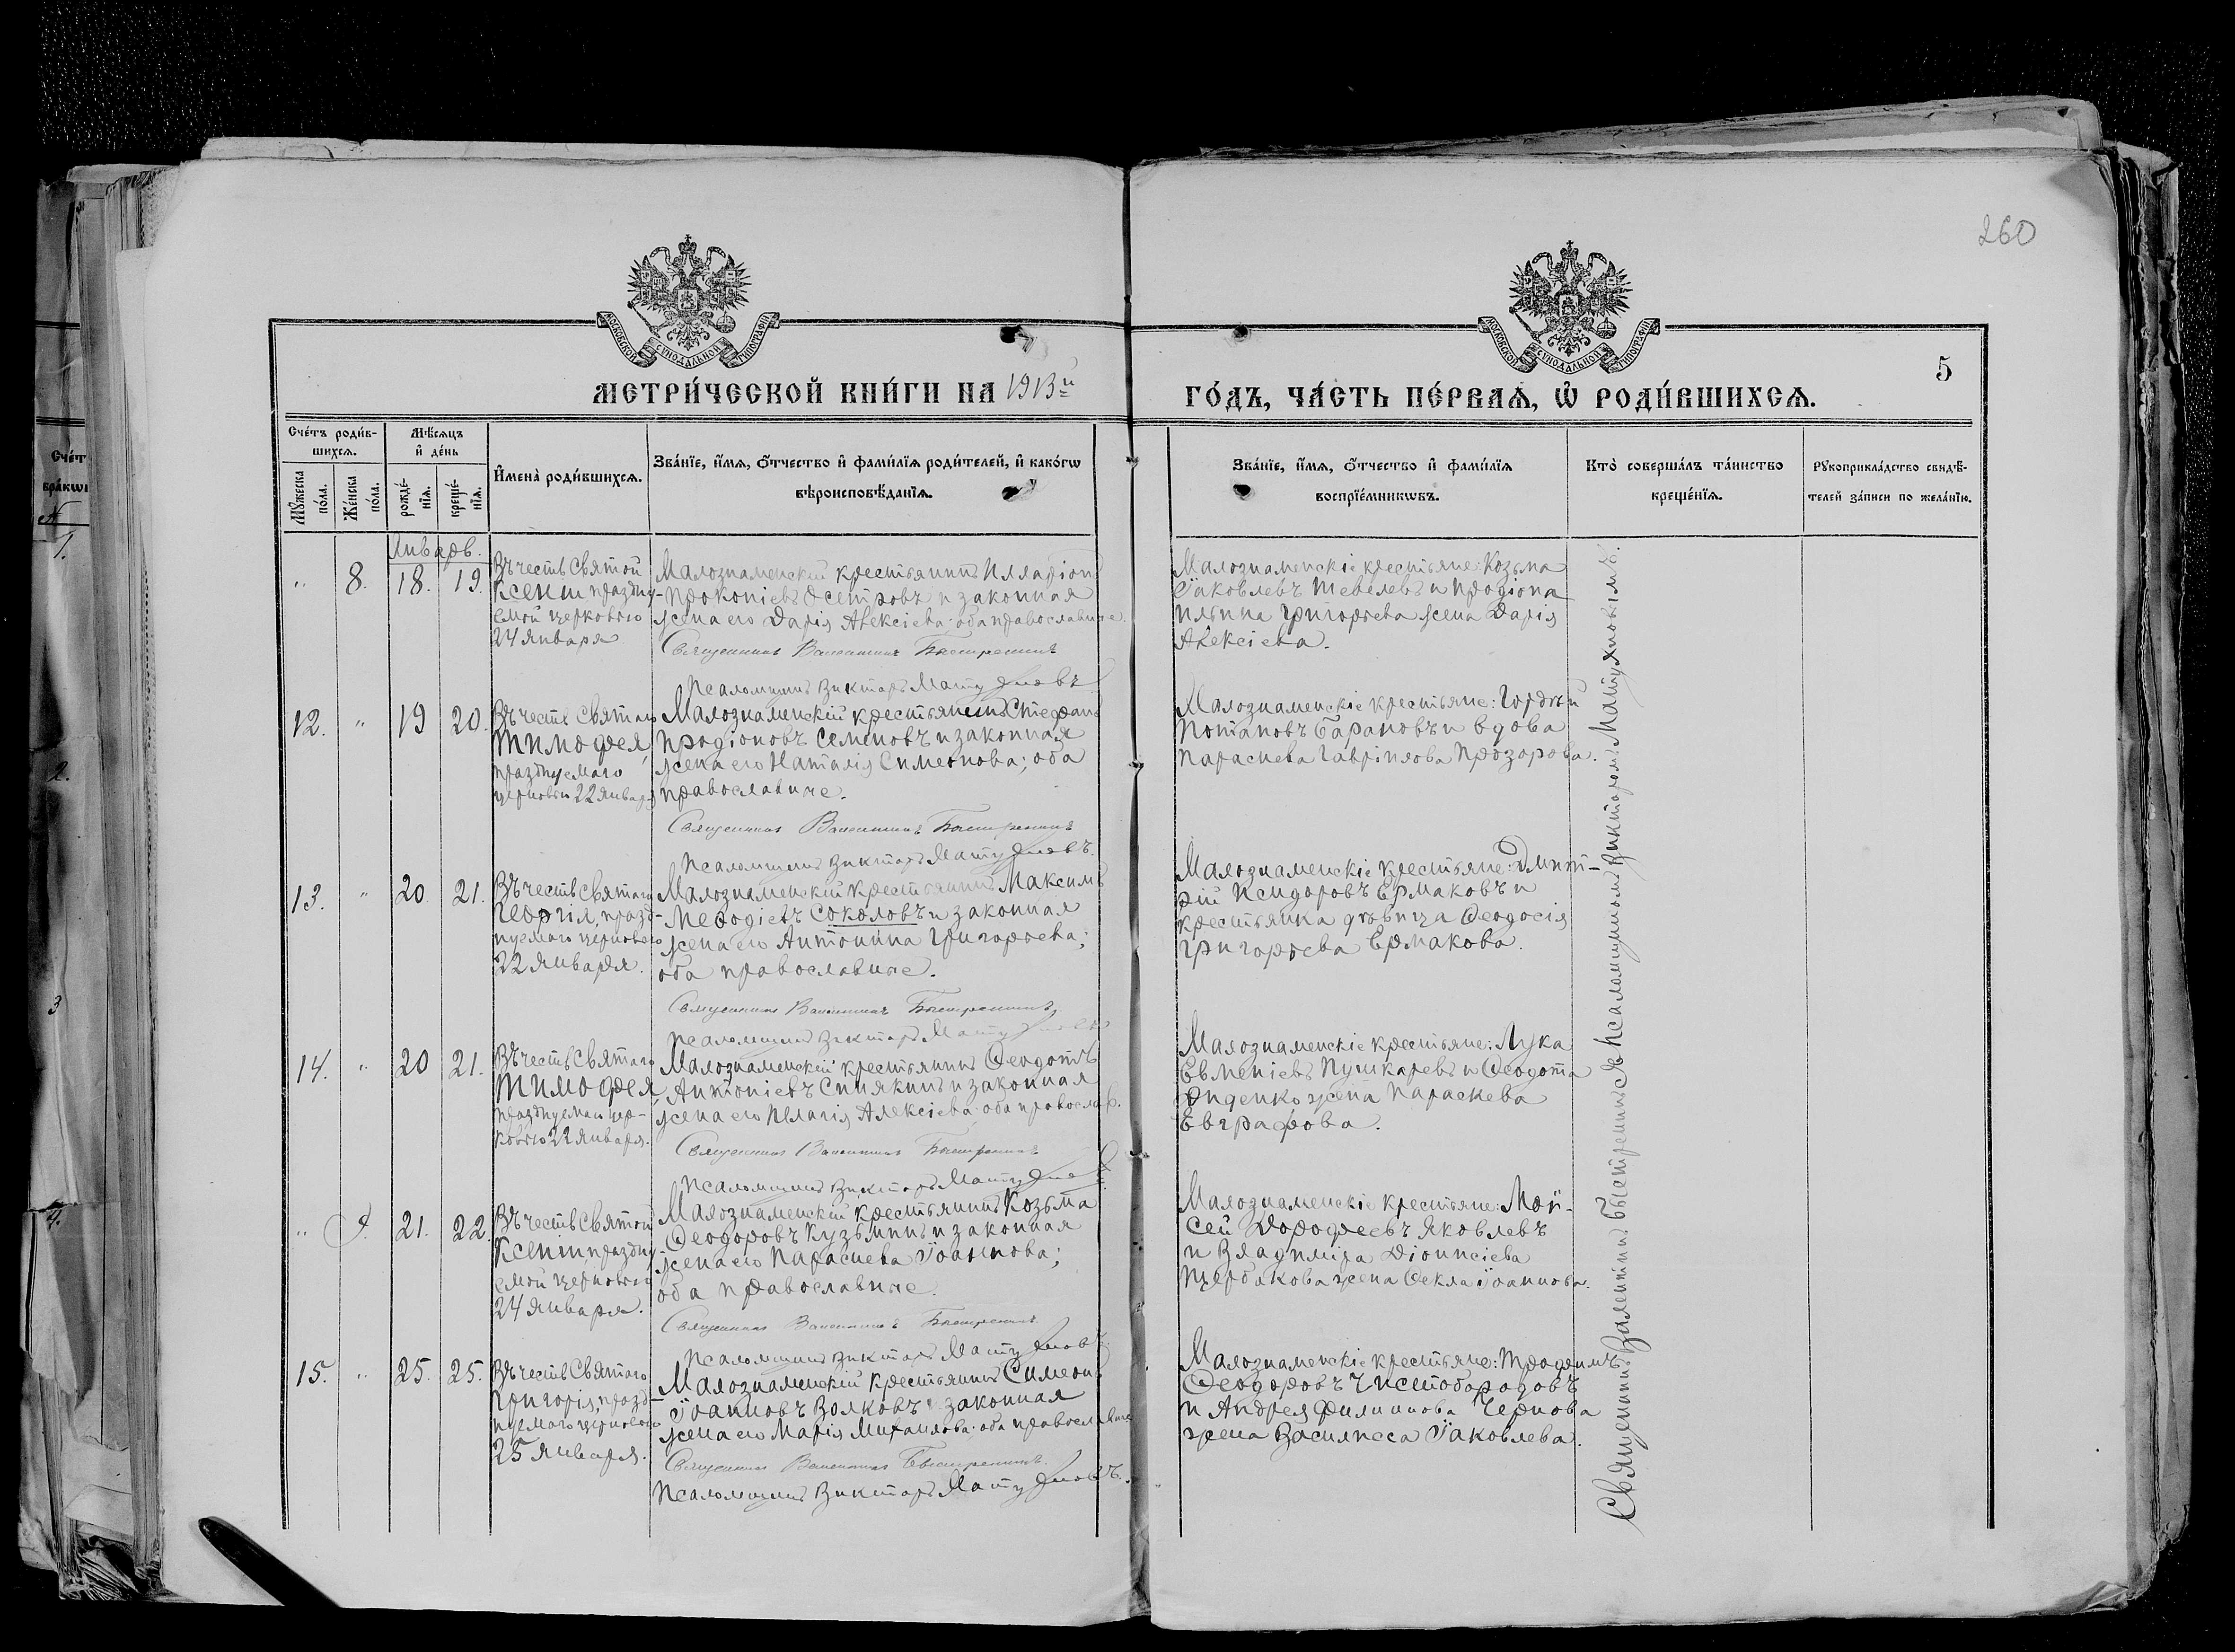 260
МОСКОВСКОЙ СѴНОДАЛЬНОЙ ТИПОГРАФІИ
МОСКОВСКОЙ СѴНОДАЛЬНОЙ ТИПОГРАФІИ
5
МЕТРИ́ЧЕСКОЙ КНИ́ГИ НА 1913й
ГО́ДЪ, ЧА́СТЬ ПЕ́РВАѦ, Ѡ҆ РОДИ́ВШИХСѦ.
Сче́тъ роди́в-
шихсѧ.
Мꙋ́жеска по́ла.
Же́нска по́ла.
Мѣ́сѧцъ
и҆ де́нь
рожде́-
нїѧ.
креще́-
нїѧ.
И҆мена̀ роди́вшихсѧ.
Зва́нїе, и҆́мѧ, ѻ҆́тчество и҆ фами́лїѧ роди́телей, и҆ како́гѡ
вѣроисповѣ́данїѧ.
Зва́нїе, и҆́мѧ, ѻ҆́тчество и҆ фами́лїѧ
воспрїе́мникѡвъ.
Кто̀ соверша́лъ та́инство
креще́нїѧ.
Рꙋкоприкла́дство свидѣ́-
телей за́писи по жела́нїю.
Январь.
" 8. 18. 19.
Въ честь Святой
Ксеніи праздну-
емой церковью
24 января
Малознаменскій крестьянинъ Илларіонъ
Прокопіевъ Осетровъ и законная
жена его Дарія Алексіева: оба православные.
Священникъ Валентинъ Быстренинъ
Псаломщикъ Викторъ Матухновъ
Малознаменскіе крестьяне: Козьма
Іаковлевъ Шевелевъ и Иродіона
Ильина Григорьева жена Дарія
Алексіева.
12. " 19 20.
Въ честь Святаго
Тимофея,
празднуемаго
церковью 22 января
Малознаменскій крестьянинъ Стефанъ
Иродіоновъ Семеновъ и законная
жена его Наталія Симеонова; оба
православные.
Священникъ Валентинъ Быстренинъ
Псаломщикъ Викторъ Матухновъ.
Малознаменскіе крестьяне: Гордѣй
Потаповъ Барановъ и вдова
Параскева Гавріилова Прозорова.
13. " 20. 21.
Въ честь Святаго
Георгія, празд-
нуемаго церковью
22 января.
Малознаменскій крестьянинъ Максимъ
Меѳодіевъ Соколовъ и законная
жена его Антонина Григорьева;
оба православные.
Священникъ Валентинъ Быстренинъ
Псаломщикъ Викторъ Матухновъ
Малознаменскіе крестьяне: Димит-
рій Исидоровъ Ермаковъ и
крестьянка дѣвица Ѳеодосія
Григорьева Ермакова.
14. " 20 21.
Въ честь Святаго
Тимофея,
празднуемаго цер-
ковью 22 января.
Малознаменскій крестьянинъ Ѳеодотъ
Антоніевъ Синякинъ и законная
жена его Пелагія Алексіева: оба правосл.
Священникъ Валентинъ Быстренинъ
Псаломщикъ Викторъ Матухновъ
Малознаменскіе крестьяне: Лука
Евменіевъ Пушкаревъ и Ѳеодота
жена Параскева
Евграфова.
" 9. 21. 22.
Въ честь Святой
Ксеніи праздну-
емой церковью
24 января.
Малознаменскій крестьянинъ Козьма
Ѳеодоровъ Кузьминъ и законная
жена его Параскева Іоаннова;
оба православные.
Священникъ Валентинъ Быстренинъ
Псаломщикъ Викторъ Матухновъ.
Малознаменскіе крестьяне: Мои-
сей Дорофеевъ Яковлевъ
и Владиміра Діонисіева
Щербакова жена Ѳекла Іоаннова.
15. " 25. 25.
Въ честь Святаго
Григорія, празд-
нуемаго церковью
25 января.
Малознаменскій крестьянинъ Симеонъ
Іоанновъ Волковъ и законная
жена его Марія Михаилова: оба православные
Священникъ Валентинъ Быстренинъ.
Псаломщикъ Викторъ Матухновъ.
Малознаменскіе крестьяне: Трофимъ
Ѳеодоровъ Чистобородовъ
и Андрея Филиппова Чернова
жена Василисса Іаковлева.
Священникъ Валентинъ Быстренинъ съ псаломщикомъ Викторомъ Матухновымъ.